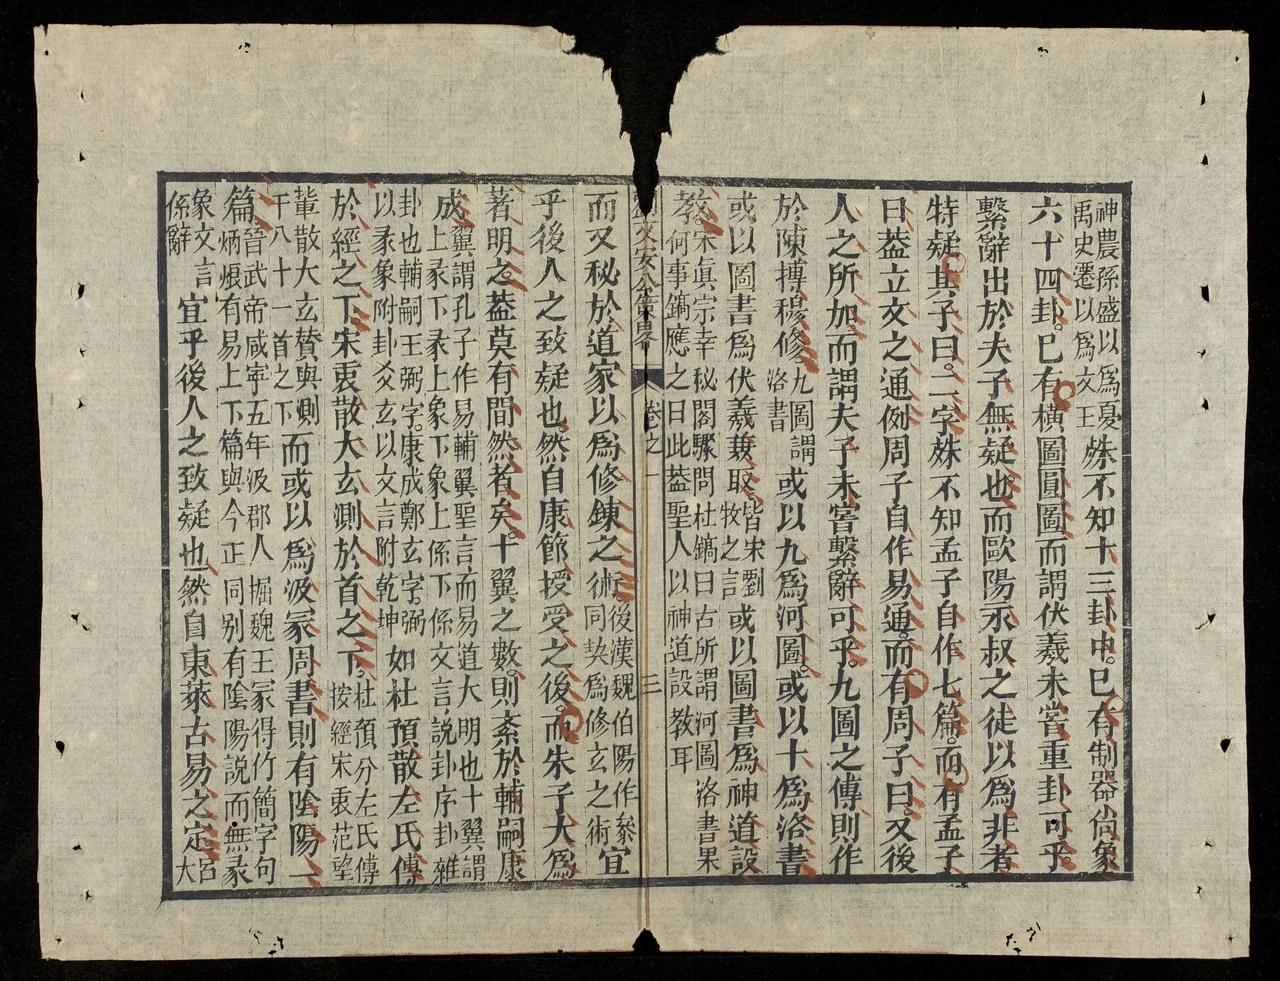 神農孫盛以爲夏
禹史遷以爲文王
殊不知十三卦中已有制器尙象
六十四卦已有橫圖圓圖而謂伏羲未嘗重卦可乎
繫辭出於夫子無疑也而歐陽永叔之徒以爲非者
特疑其子曰二字殊不知孟子自作七篇而有孟子
曰蓋立文之通例周子自作易通而有周子曰又後
人之所加而謂夫子未嘗繫辭可乎九圖之傳則作
於陳摶穆修
九圖謂
洛書
或以九爲河圖或以十爲洛書
或以圖書爲伏羲兼取
皆宋劉
牧之言
或以圖書爲神道設
教
宋眞宗幸秘閣驟問杜鎬曰古所謂河圖洛書果
何事鎬應之曰此蓋聖人以神道設教耳
卷之一
三
而又秘於道家以爲修鍊之術
後漢魏伯陽作參
同契爲修玄之術
宜
乎後人之致疑也然自康節授受之後而朱子大爲
著明之蓋莫有間然者矣十翼之數則紊於輔嗣康
成
翼謂孔子作易輔翼聖言而易道大明也十翼謂
上彖下彖上象下象上係下係文言說卦序卦雜
卦也輔嗣王弼字康成鄭玄字弼
以彖象附卦爻玄以文言附乾坤
如杜預散左氏傳
於經之下宋衷散大玄測於首之下
杜預分左氏傳
按經宋衷范望
輩散大玄贊與測
于八十一首之下
而或以爲汲冢周書則有陰陽一
篇
晉武帝咸寧五年汲郡人掘魏王冢得竹簡字句
炳煥有易上下篇與今正同別有陰陽說而無彖
象文言
係辭
宜乎後人之致疑也然自東萊古易之定
呂
大